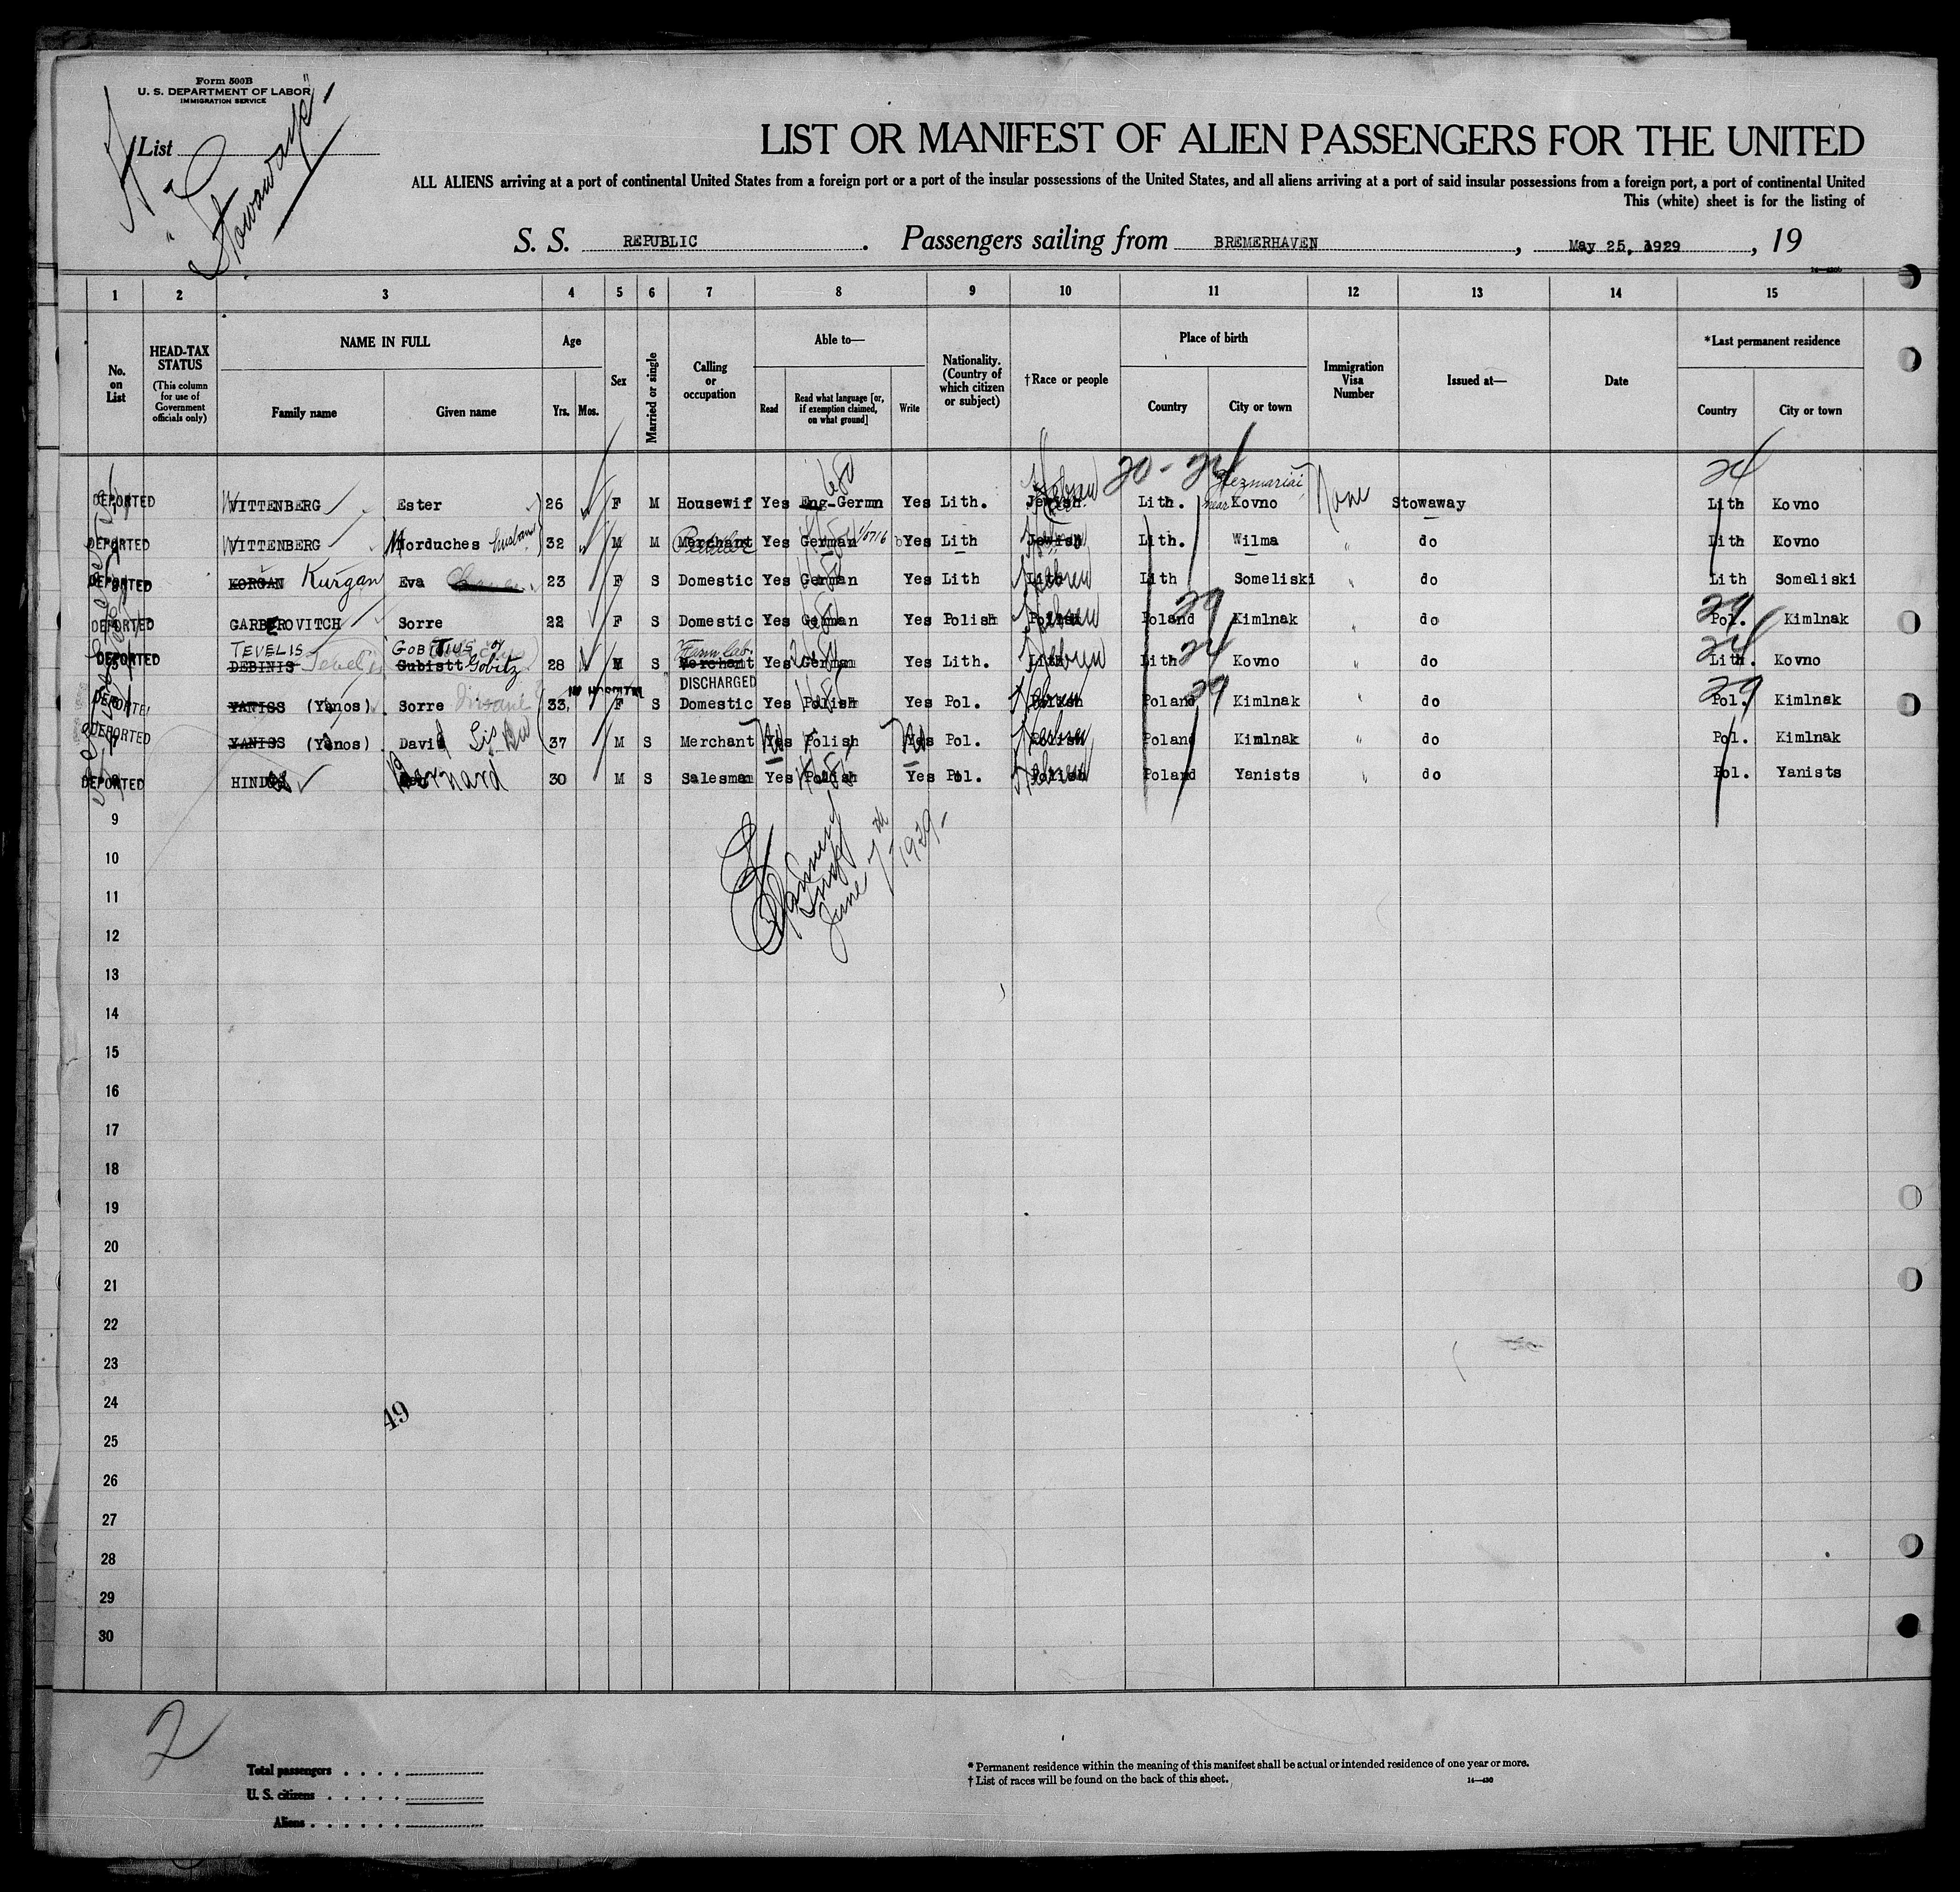 Form 500B
U. S. DEPARTMENT OF LABOR
IMMIGRATION SERVICE
List
Stowaways
LIST OR MANIFEST OF ALIEN PASSENGERS FOR THE UNITED
ALL ALIENS arriving at a port of continental United States from a foreign port or a port of the insular possessions of the United States, and all aliens arriving at a port of said insular possessions from a foreign port, a port of continental United
This (white) sheet is for the listing of
S. S. REPUBLIC. Passengers sailing from BREMERHAVEN, May 25, 1929, 19
1 2 3 4 5 6 7 8 9 10 11 12 13 14 15
No. on List
HEAD-TAX STATUS (This column for use of Government officials only)
NAME IN FULL
Family name Given name
Age
Yrs. Mos.
Sex
Married or single
Calling or occupation
Able to—
Read
Read what language [or, if exemption claimed, on what ground]
Write
Nationality. (Country of which citizen or subject)
†Race or people
Place of birth
Country City or town
Immigration Visa Number
Issued at—
Date
*Last permanent residence
Country City or town
20 - 24 24
DEPORTED WITTENBERG Ester 26 F M Housewif Yes Eng-Germn Yes Lith. Jewish Hebrew Lith. near Kovno None Stowaway Lith Kovno
DEPORTED WITTENBERG Morduches husband 32 M M Merchant Yes German Yes Lith Jewish Lith. Wilma " do Lith Kovno
DEPORTED KORGAN Kurgan Eva 23 F S Domestic Yes German Yes Lith Lith Hebrew Lith Someliski " do Lith Someliski
29 29
DEPORTED GARBEROVITCH Sorre 22 F S Domestic Yes German Yes Polish Polish Hebrew Poland Kimlnak " do Pol. Kimlnak
TEVELIS GOBTIUS or Farm lab. 24 24
DEPORTED DEBINIS Tevelis Gubistt Gobitz 28 M S Merchant Yes German Yes Lith. Lith Hebrew Lith Kovno " do Lith. Kovno
IN HOSPITAL DISCHARGED
DEPORTED YANISS (Yanos) Sorre 33 F S Domestic Yes Polish Yes Pol. Polish Hebrew Poland 29 Kimlnak " do Pol. 29 Kimlnak
DEPORTED YANISS (Yanos) David 37 M S Merchant Yes No Polish Yes No Pol. Hebrew Poland Kimlnak " do Pol. Kimlnak
DEPORTED HINDES Bernard 30 M S Salesman Yes Polish Yes Pol. Polish Hebrew Poland Yanists " do Pol. Yanists
9
June 7th 1929
10
11
12
13
14
15
16
17
18
19
20
21
22
23
24
49
25
26
27
28
29
30
2
Total passengers
U. S. citizens
Aliens
* Permanent residence within the meaning of this manifest shall be actual or intended residence of one year or more.
† List of races will be found on the back of this sheet.
14—430